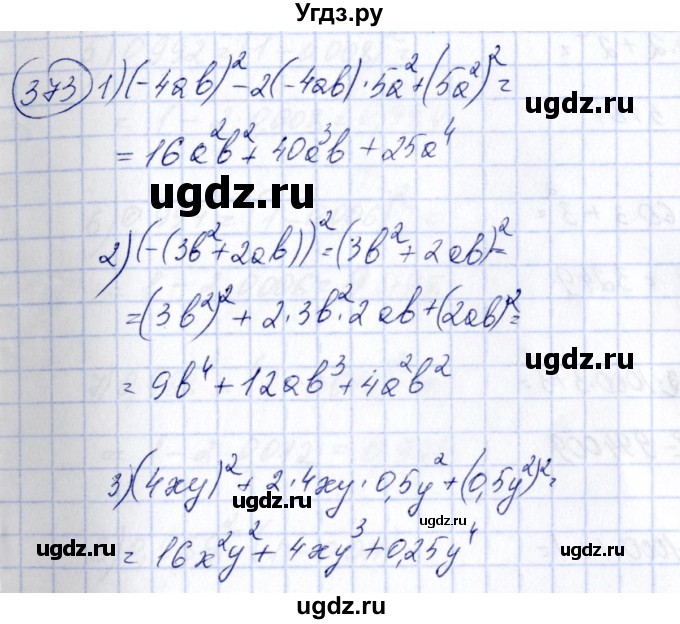 Угдз.ру
373 1) (-4ab)² - 2(-4ab)·5a² + (5a²)² =
= 16a²b² + 40a³b + 25a⁴
ugdz.ru
ugdz.ru
2) (-(3b² + 2ab))² = (3b² + 2ab)² =
= (3b²)² + 2·3b²·2ab + (2ab)² =
ugdz.ru
= 9b⁴ + 12ab³ + 4a²b²
3) (4xy)² + 2·4xy·0,5y² + (0,5y²)² =
ugdz.ru
ugdz.ru
= 16x²y² + 4xy³ + 0,25y⁴
ugdz.ru
ugdz.ru
ugdz.ru